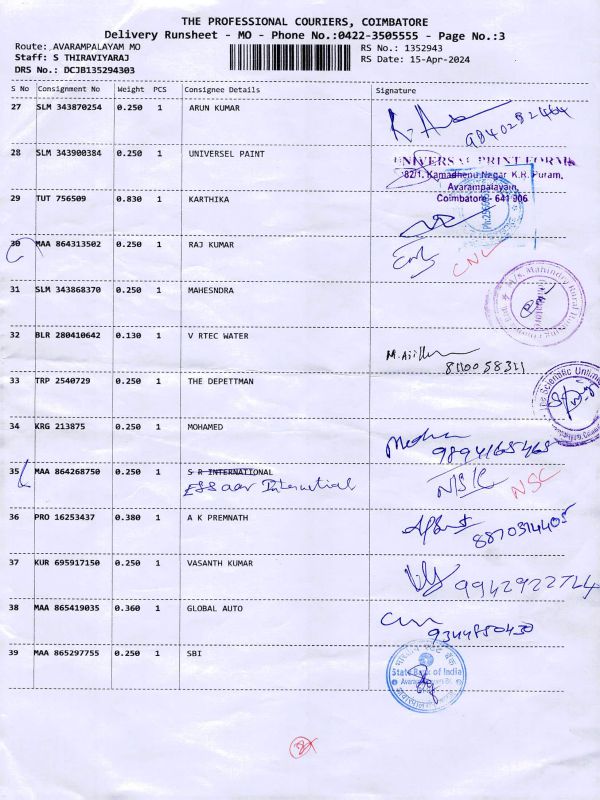 THE PROFESSIONAL COURIERS, COIMBATORE
Delivery Runsheet - MO - Phone No.:0422-3505555 - Page No.:3
Route: AVARAMPALAYAM MO RS No.: 1352943
Staff: S THIRAVIYARAJ RS Date: 15-Apr-2024
DRS No.: DCJB135294303
S No Consignment No Weight PCS Consignee Details Signature
27 SLM 343870254 0.250 1 ARUN KUMAR
9840282464
28 SLM 343900384 0.250 1 UNIVERSEL PAINT UNIVERSAL PRINT FORMS
82/1, Kamadhenu Nagar K.R. Puram,
Avarampalayam,
29 TUT 756509 0.830 1 KARTHIKA Coimbatore - 641 006
30 MAA 864313502 0.250 1 RAJ KUMAR
CNL
31 SLM 343868370 0.250 1 MAHESNDRA
32 BLR 280410642 0.130 1 V RTEC WATER
33 TRP 2540729 0.250 1 THE DEPETTMAN
The Scientific
34 KRG 213875 0.250 1 MOHAMED
9894165465
35 MAA 864268750 0.250 1 S R INTERNATIONAL NSC
36 PRO 16253437 0.380 1 A K PREMNATH
8870314405
37 KUR 695917150 0.250 1 VASANTH KUMAR 9942922744
38 MAA 865419035 0.360 1 GLOBAL AUTO
9344850430
39 MAA 865297755 0.250 1 SBI
State Bank of India